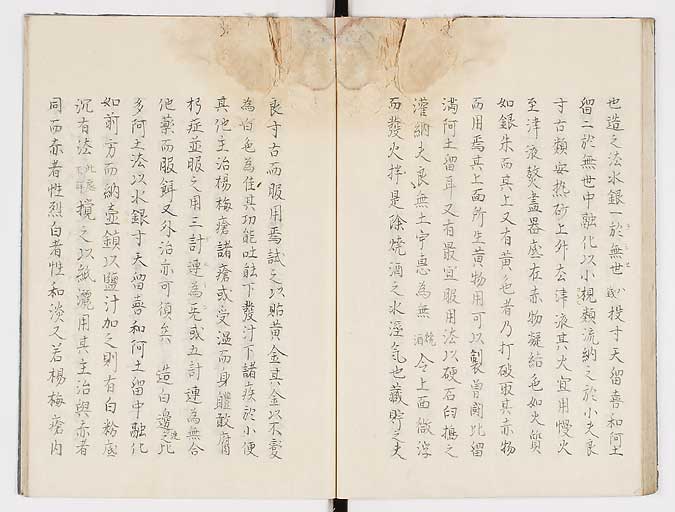 也造之法水銀一於無世或投寸天留喜和阿土
留一於無世中融化以小梘類流納之於小夫良
寸古類安热砂上升去津液其火宜用慢火
至津液發盖器底有赤物凝結色如火質
如銀朱而其上又有黄色者乃打破取其赤物
而用焉其上面所生黄物用可以製曽闍比留
满阿土留耳又有最宜服用法以硬石臼搗之
灌納夫良無土宇恵為無燒酒令上面微浮
而發火拌是除燒酒之水溼氣也蔵貯之夫
良寸古而服用焉試之以貼黄金其金以不変
為白色為佳其功能吐能下發汁下諸疾於小便
其他主治楊梅瘡諸瘡或受温而身體敢腐
朽症並服之用三計連為无或五計連為無合
他藥而服餌又外治亦可須矣 造白邊比
多阿土法以水銀寸天留喜和阿土留中融化
如前方而納壺鎖以鹽汁加之則有白粉底
沉有法攪之以紙灑用其主治與赤者
同而赤者性烈白者性和淡又若楊梅瘡内